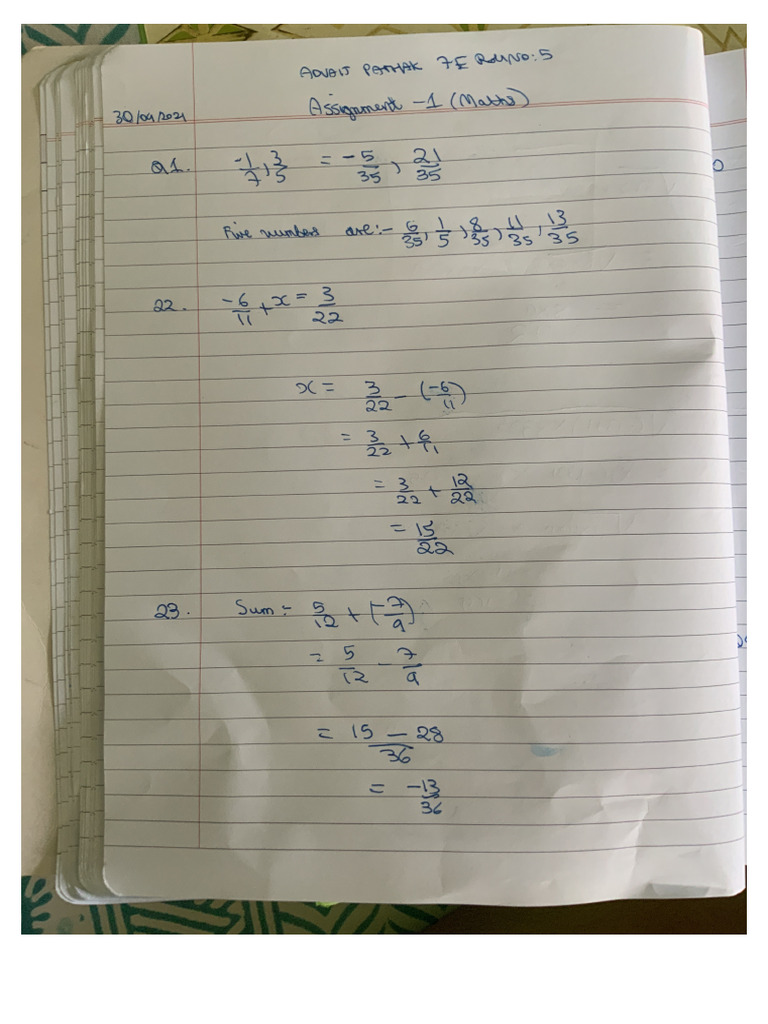 ADVAIT PATHAK 7E Roll No: 5
Assignment -1 (Maths)
30/04/2021
Q1. -1/7, 3/5 = -5/35, 21/35
Five numbers are:- 6/35, 1/5, 8/35, 11/35, 13/35
22. -6/11 + x = 3/22
x = 3/22 - (-6/11)
= 3/22 + 6/11
= 3/22 + 12/22
= 15/22
23. Sum :- 5/12 + (-7/9)
= 5/12 - 7/9
= 15 - 28/36
= -13/36